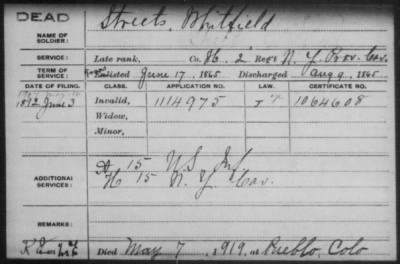 DEAD
NAME OF SOLDIER: Streets, Whitfield
SERVICE: Late rank, Co. H, 2 Reg't N. Y. Prov. Cav.
TERM OF SERVICE: Enlisted June 17, 1865 Discharged Aug 9, 1865
DATE OF FILING. CLASS. APPLICATION NO. LAW. CERTIFICATE NO.
1892 June 3 Invalid, 1114975 1064608
Widow,
Minor,
ADDITIONAL SERVICES: A 15 U.S. Inf
H 15 N. Y. Cav.
REMARKS:
Died May 7, 1919, at Pueblo, Colo